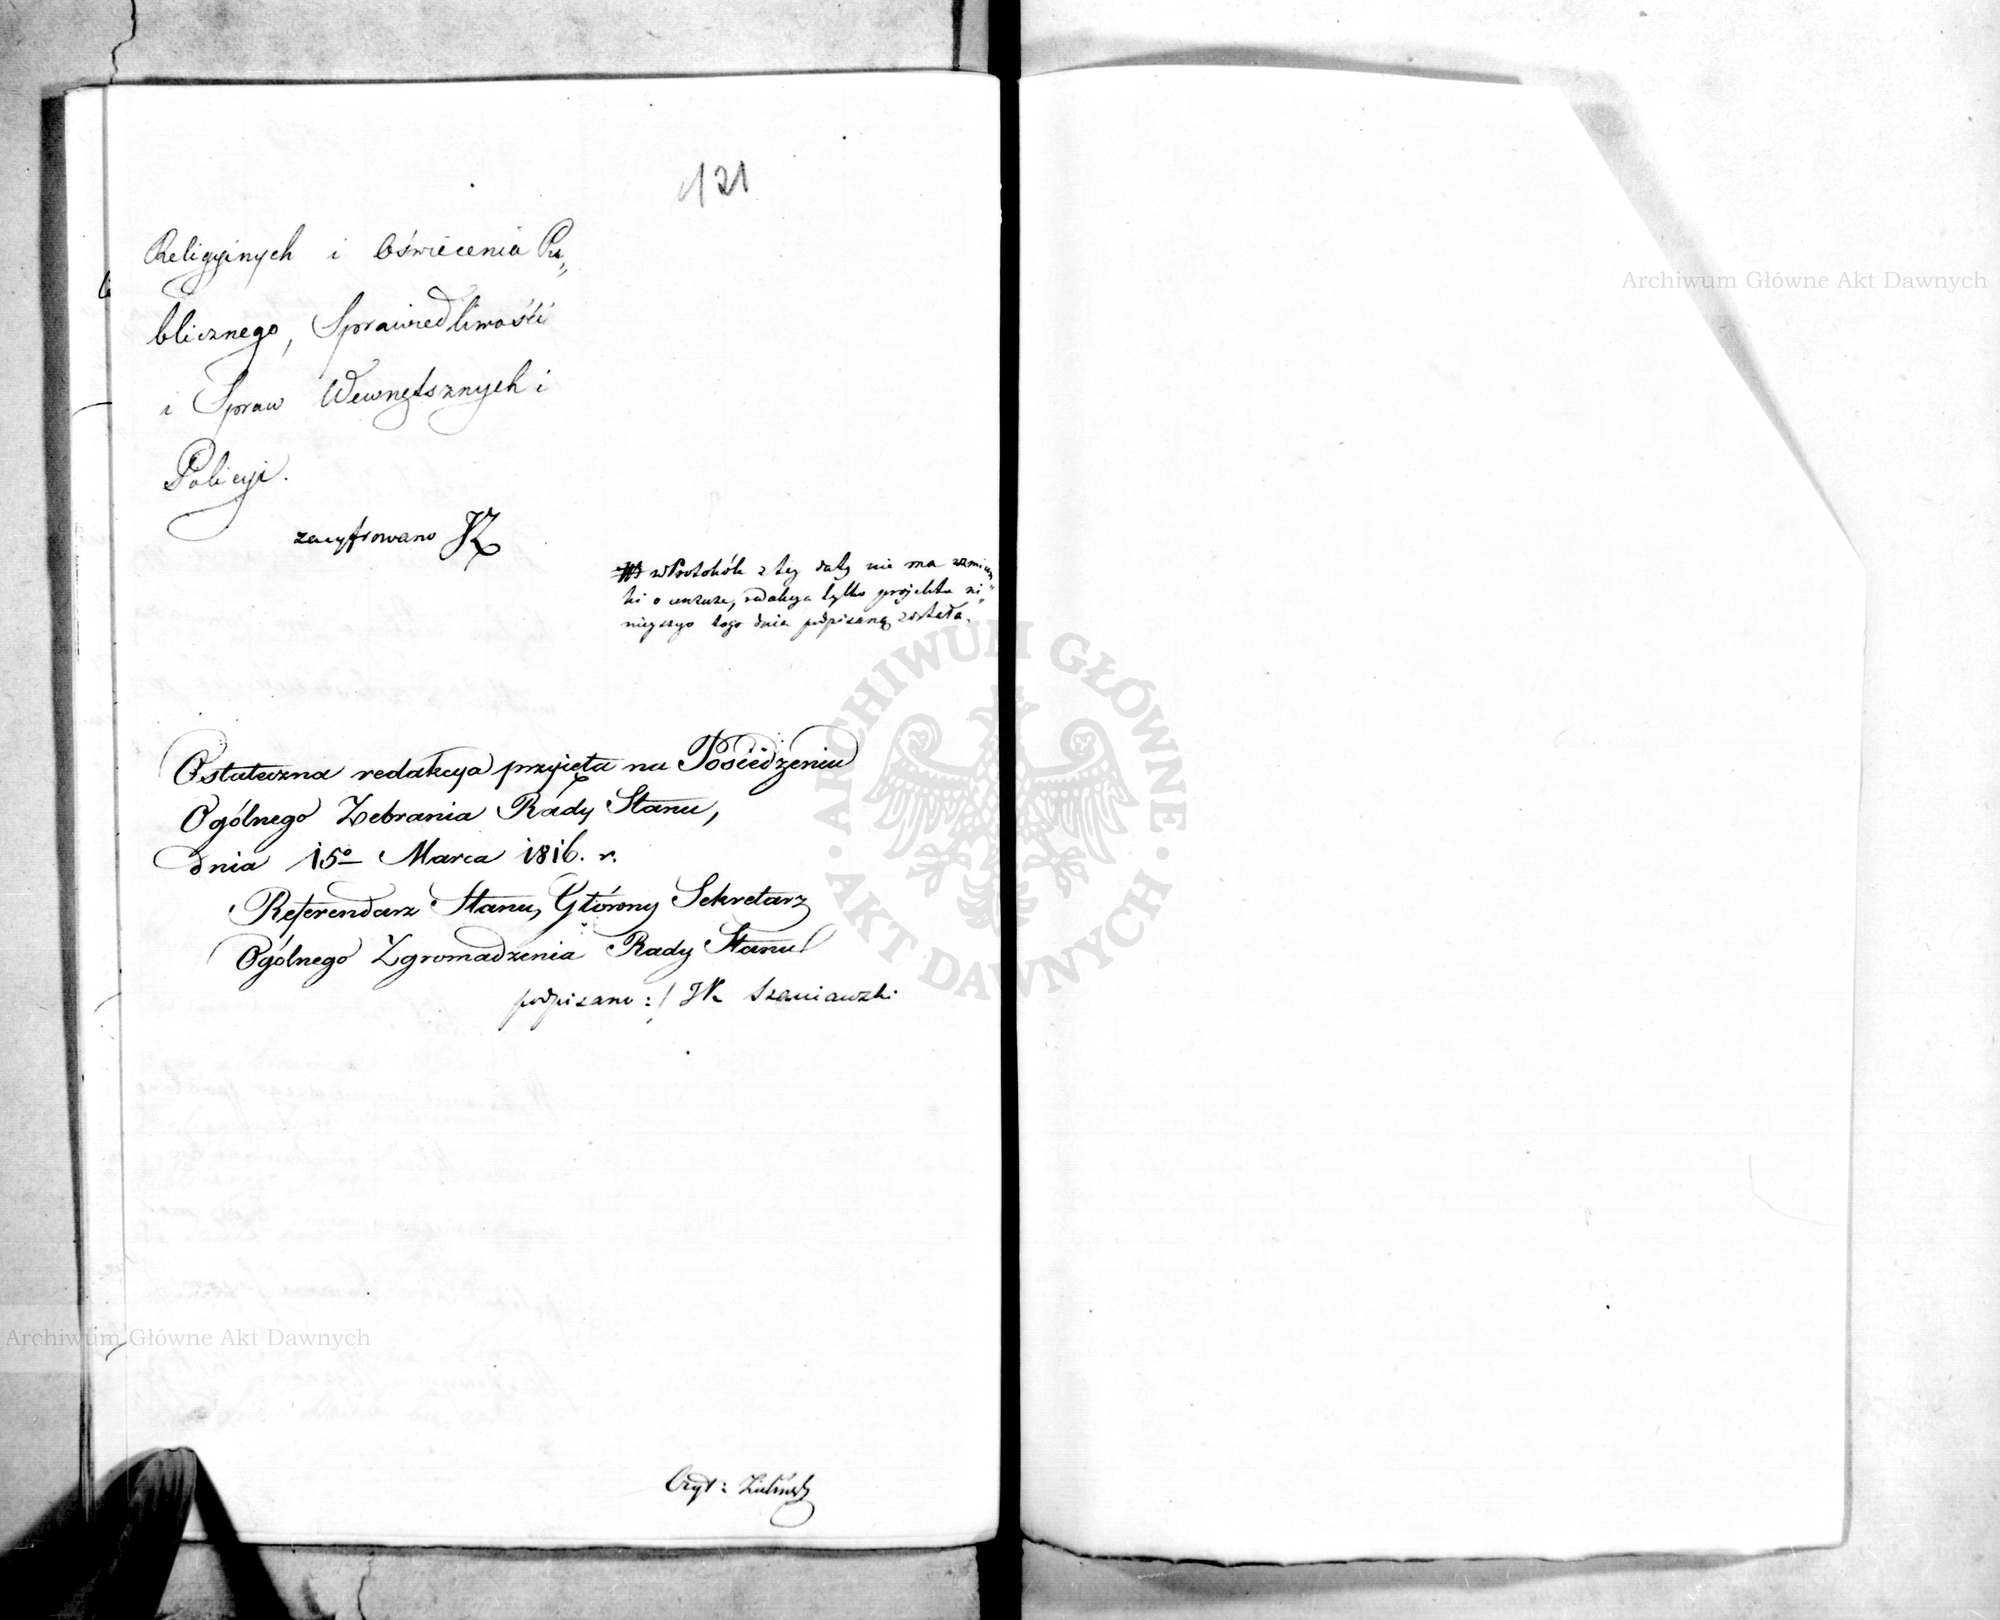 121
Religyinych i Oświecenia Pu„
blicznego, Sprawiedliwości
i Spraw Wewnętsznych i
Policyi.
zacyfrowano
w Protokóle z tey daty nie ma wzmian„
ki o cenzurze, redakcya tylko projektu ni„
nieyszego tego dnia podpisaną została.
Ostateczna redakcya przyięta na Posiedzeniu
Ogólnego Zebrania Rady Stanu,
dnia 15º Marca 1816. r.
Referendarz Stanu, Główny Sekretarz
Ogólnego Zgromadzenia Rady Stanu
podpisano :/ JK Szaniawski
Czyt: Zieliński
Archiwum Główne Akt Dawnych
ARCHIWUM GŁÓWNE · AKT DAWNYCH ·
Archiwum Główne Akt Dawnych